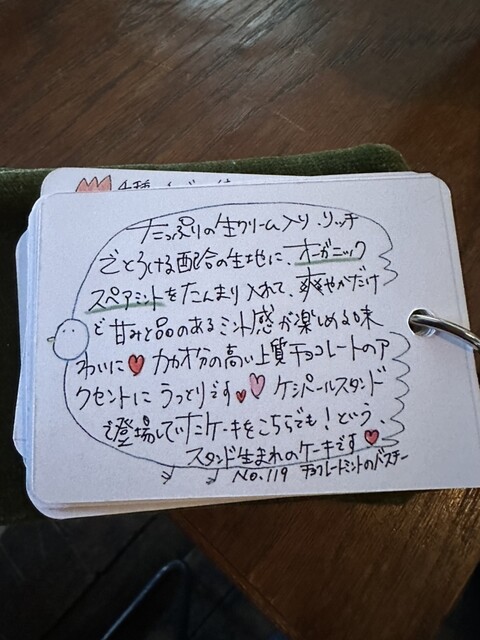 たっぷりの生クリーム入り、リッチ
でとろける配合の生地に、オーガニック
スペアミントをたんまり入れて、爽やかだけ
ど甘みと品のあるミント感が楽しめる味
わいに♥カカオ分の高い上質チョコレートのア
クセントにうっとりです♥♥ケシパールスタンド
で登場していたケーキをこちらでも！という、
スタンド生まれのケーキです♥
No.119 チョコレートミントのバスチー